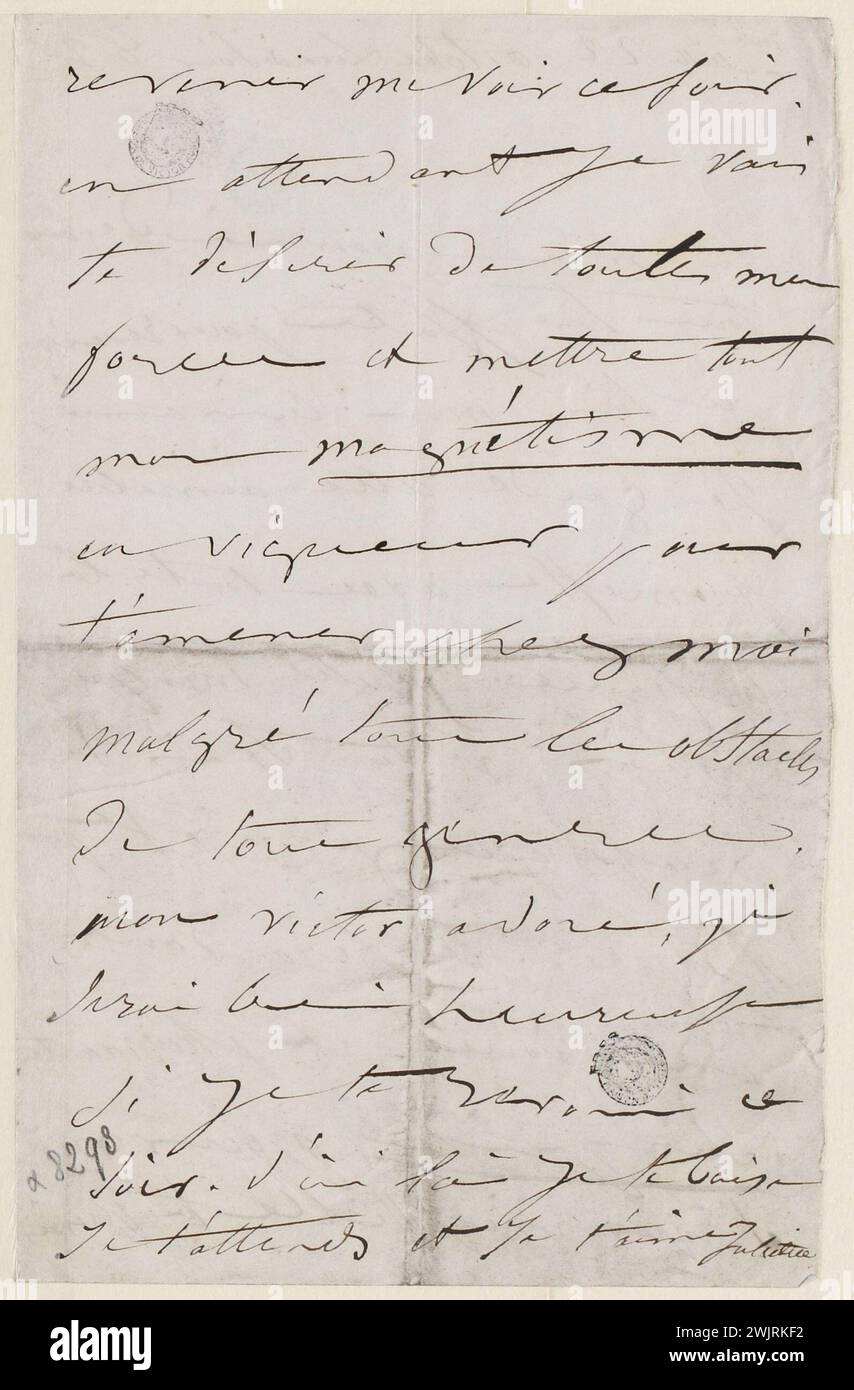 revenir me voir ce soir.
en attendant je vais
te désirer de toutes mes
forces et mettre tout
mon magnétisme
en vigueur pour
t'amener chez moi
malgré tous les obstacles
de tous genres.
mon victor adoré, je
serai bien heureuse
si je te revois ce
soir. d'ici là je te baise
je t'attends et je t'aime
Juliette
α 8298
alamy
Image ID: 2WJRKF2
www.alamy.com